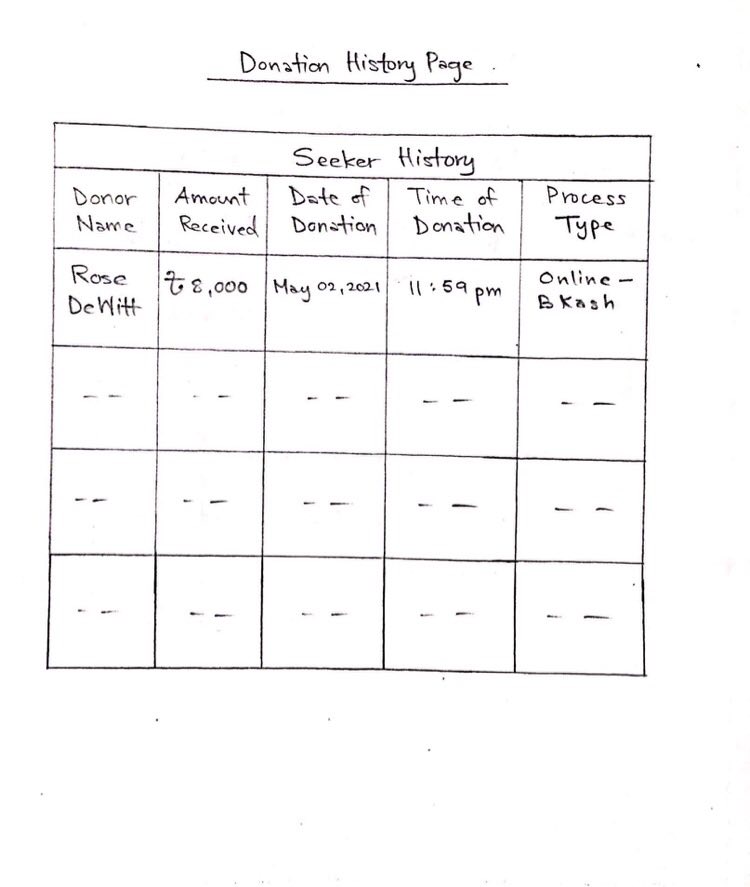 Donation History Page.
Seeker History
Donor Name | Amount Received | Date of Donation | Time of Donation | Process Type
Rose DeWitt | ৳ 8,000 | May 02, 2021 | 11:59 pm | Online - Bkash
-- | -- | -- | -- | --
-- | -- | -- | -- | --
-- | -- | -- | -- | --